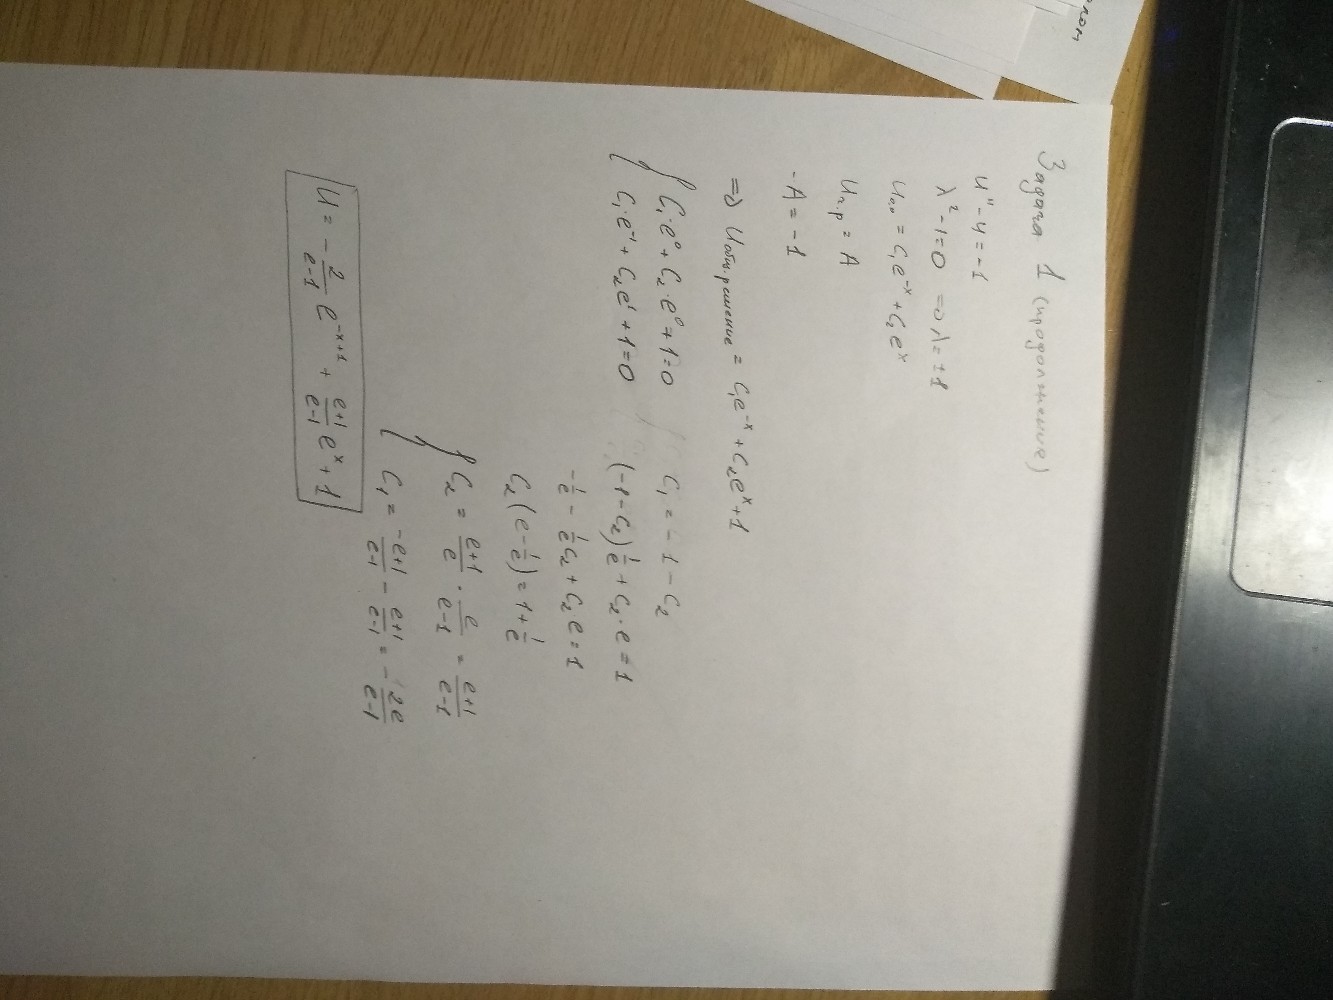 Задача 1 (продолжение)
u" - u = -1
λ² - 1 = 0 => λ = ±1
u₀.₀ = C₁e⁻ˣ + C₂eˣ
uч.р = A
-A = -1
=> uобщ.решение = C₁e⁻ˣ + C₂eˣ + 1
{ C₁·e⁰ + C₂·e⁰ + 1 = 0
C₁·e⁻¹ + C₂e¹ + 1 = 0
C₁ = -1 - C₂
(-1 - C₂) 1/e + C₂·e = 1
-1/e - 1/e C₂ + C₂·e = 1
C₂(e - 1/e) = 1 + 1/e
{ C₂ = e+1/e · e/e-1 = e+1/e-1
C₁ = -e+1/e-1 - e+1/e-1 = -2e/e-1
u = - 2/e-1 e⁻ˣ⁺¹ + e+1/e-1 eˣ + 1